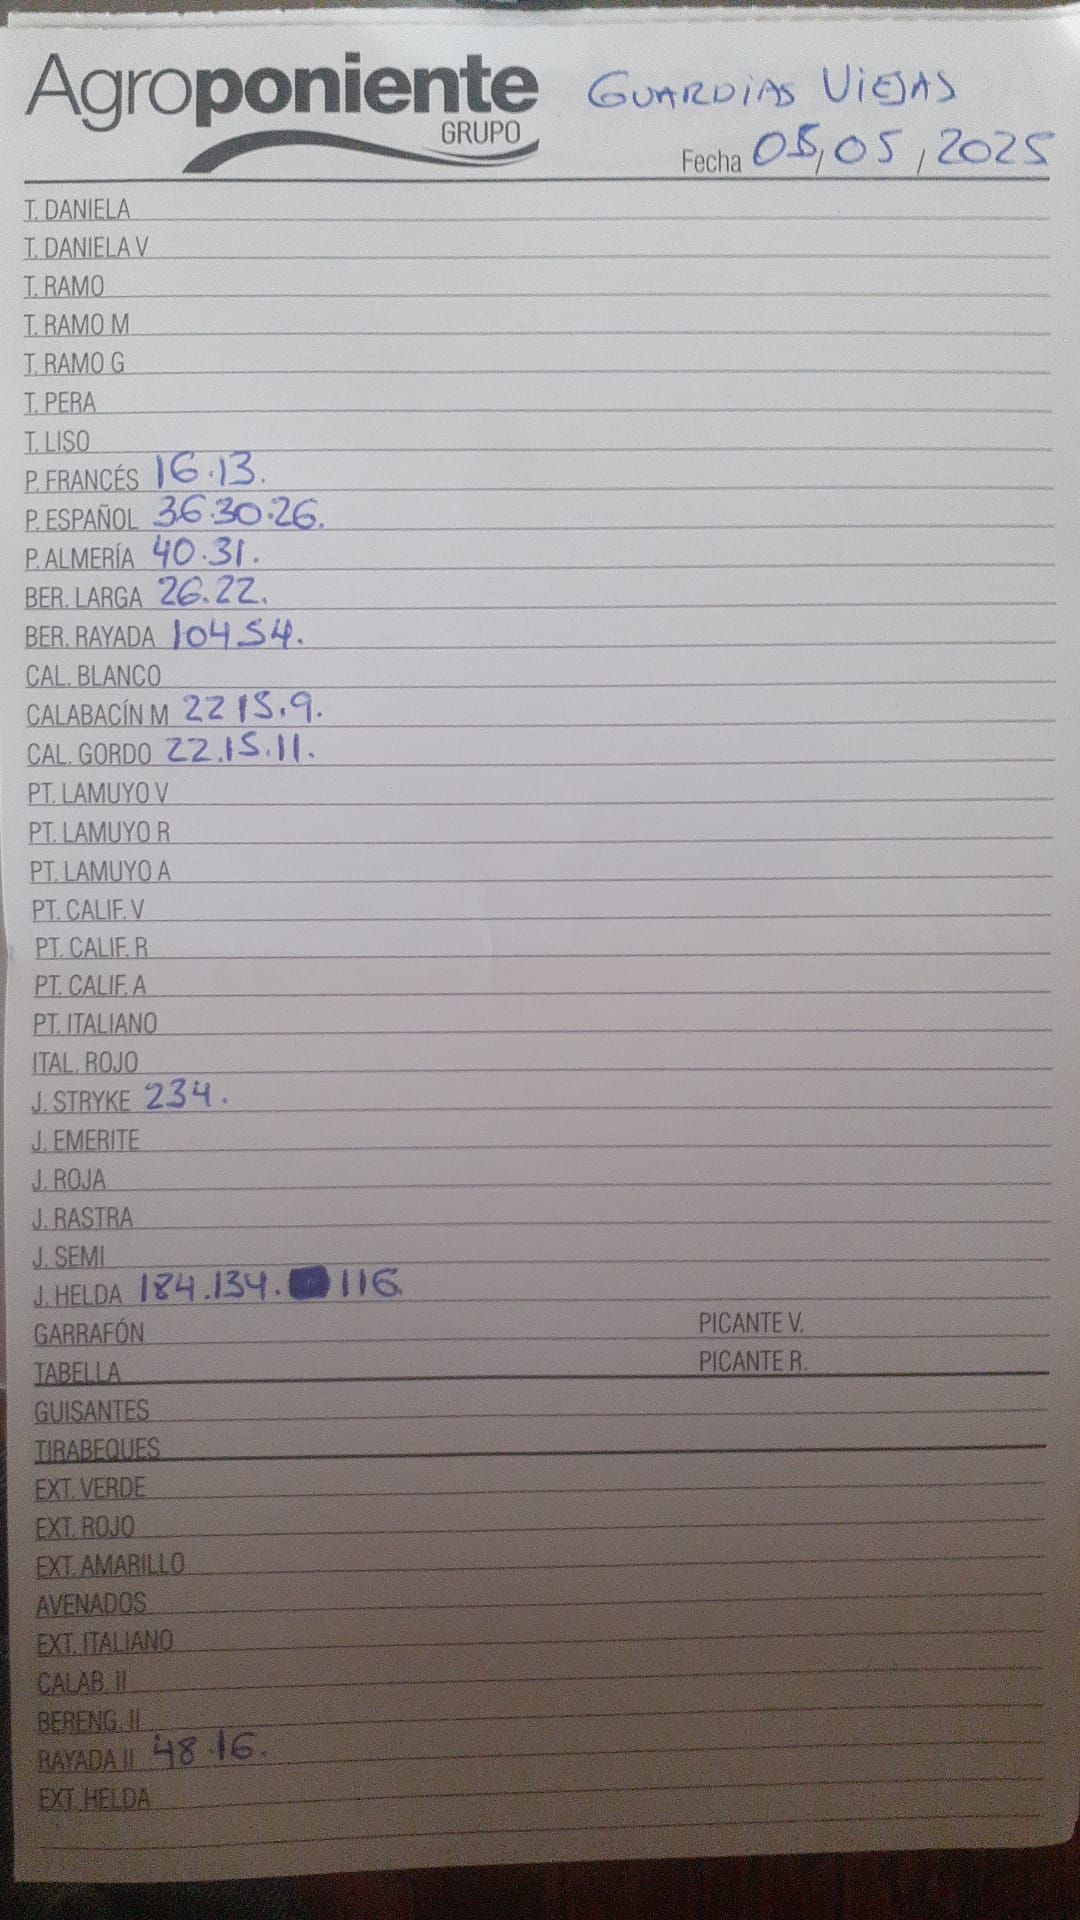 Agroponiente GUARDIAS VIEJAS
GRUPO
Fecha 05,05,2025
T. DANIELA
T. DANIELA V
T. RAMO
T. RAMO M
T. RAMO G
T. PERA
T. LISO
P. FRANCÉS 16.13.
P. ESPAÑOL 36.30.26.
P. ALMERÍA 40.31.
BER. LARGA 26.22.
BER. RAYADA 104 54.
CAL. BLANCO
CALABACÍN M 22 15.9.
CAL. GORDO 22.15.11.
PT. LAMUYO V
PT. LAMUYO R
PT. LAMUYO A
PT. CALIF. V
PT. CALIF. R
PT. CALIF. A
PT. ITALIANO
ITAL. ROJO
J. STRYKE 234.
J. EMERITE
J. ROJA
J. RASTRA
J. SEMI
J. HELDA 184.134. 116.
GARRAFÓN PICANTE V.
TABELLA PICANTE R.
GUISANTES
TIRABEQUES
EXT. VERDE
EXT. ROJO
EXT. AMARILLO
AVENADOS
EXT. ITALIANO
CALAB. II
BERENG. II
RAYADA II 48.16.
EXT. HELDA